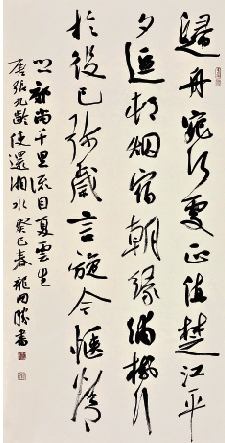 歸舟宛何處正值楚江平
夕逗邨烟宿朝緣浦樹行
於役已彌歲言旋今愜情
鄉郊尚千里流目夏雲生
唐張九齡使還湘水癸巳春